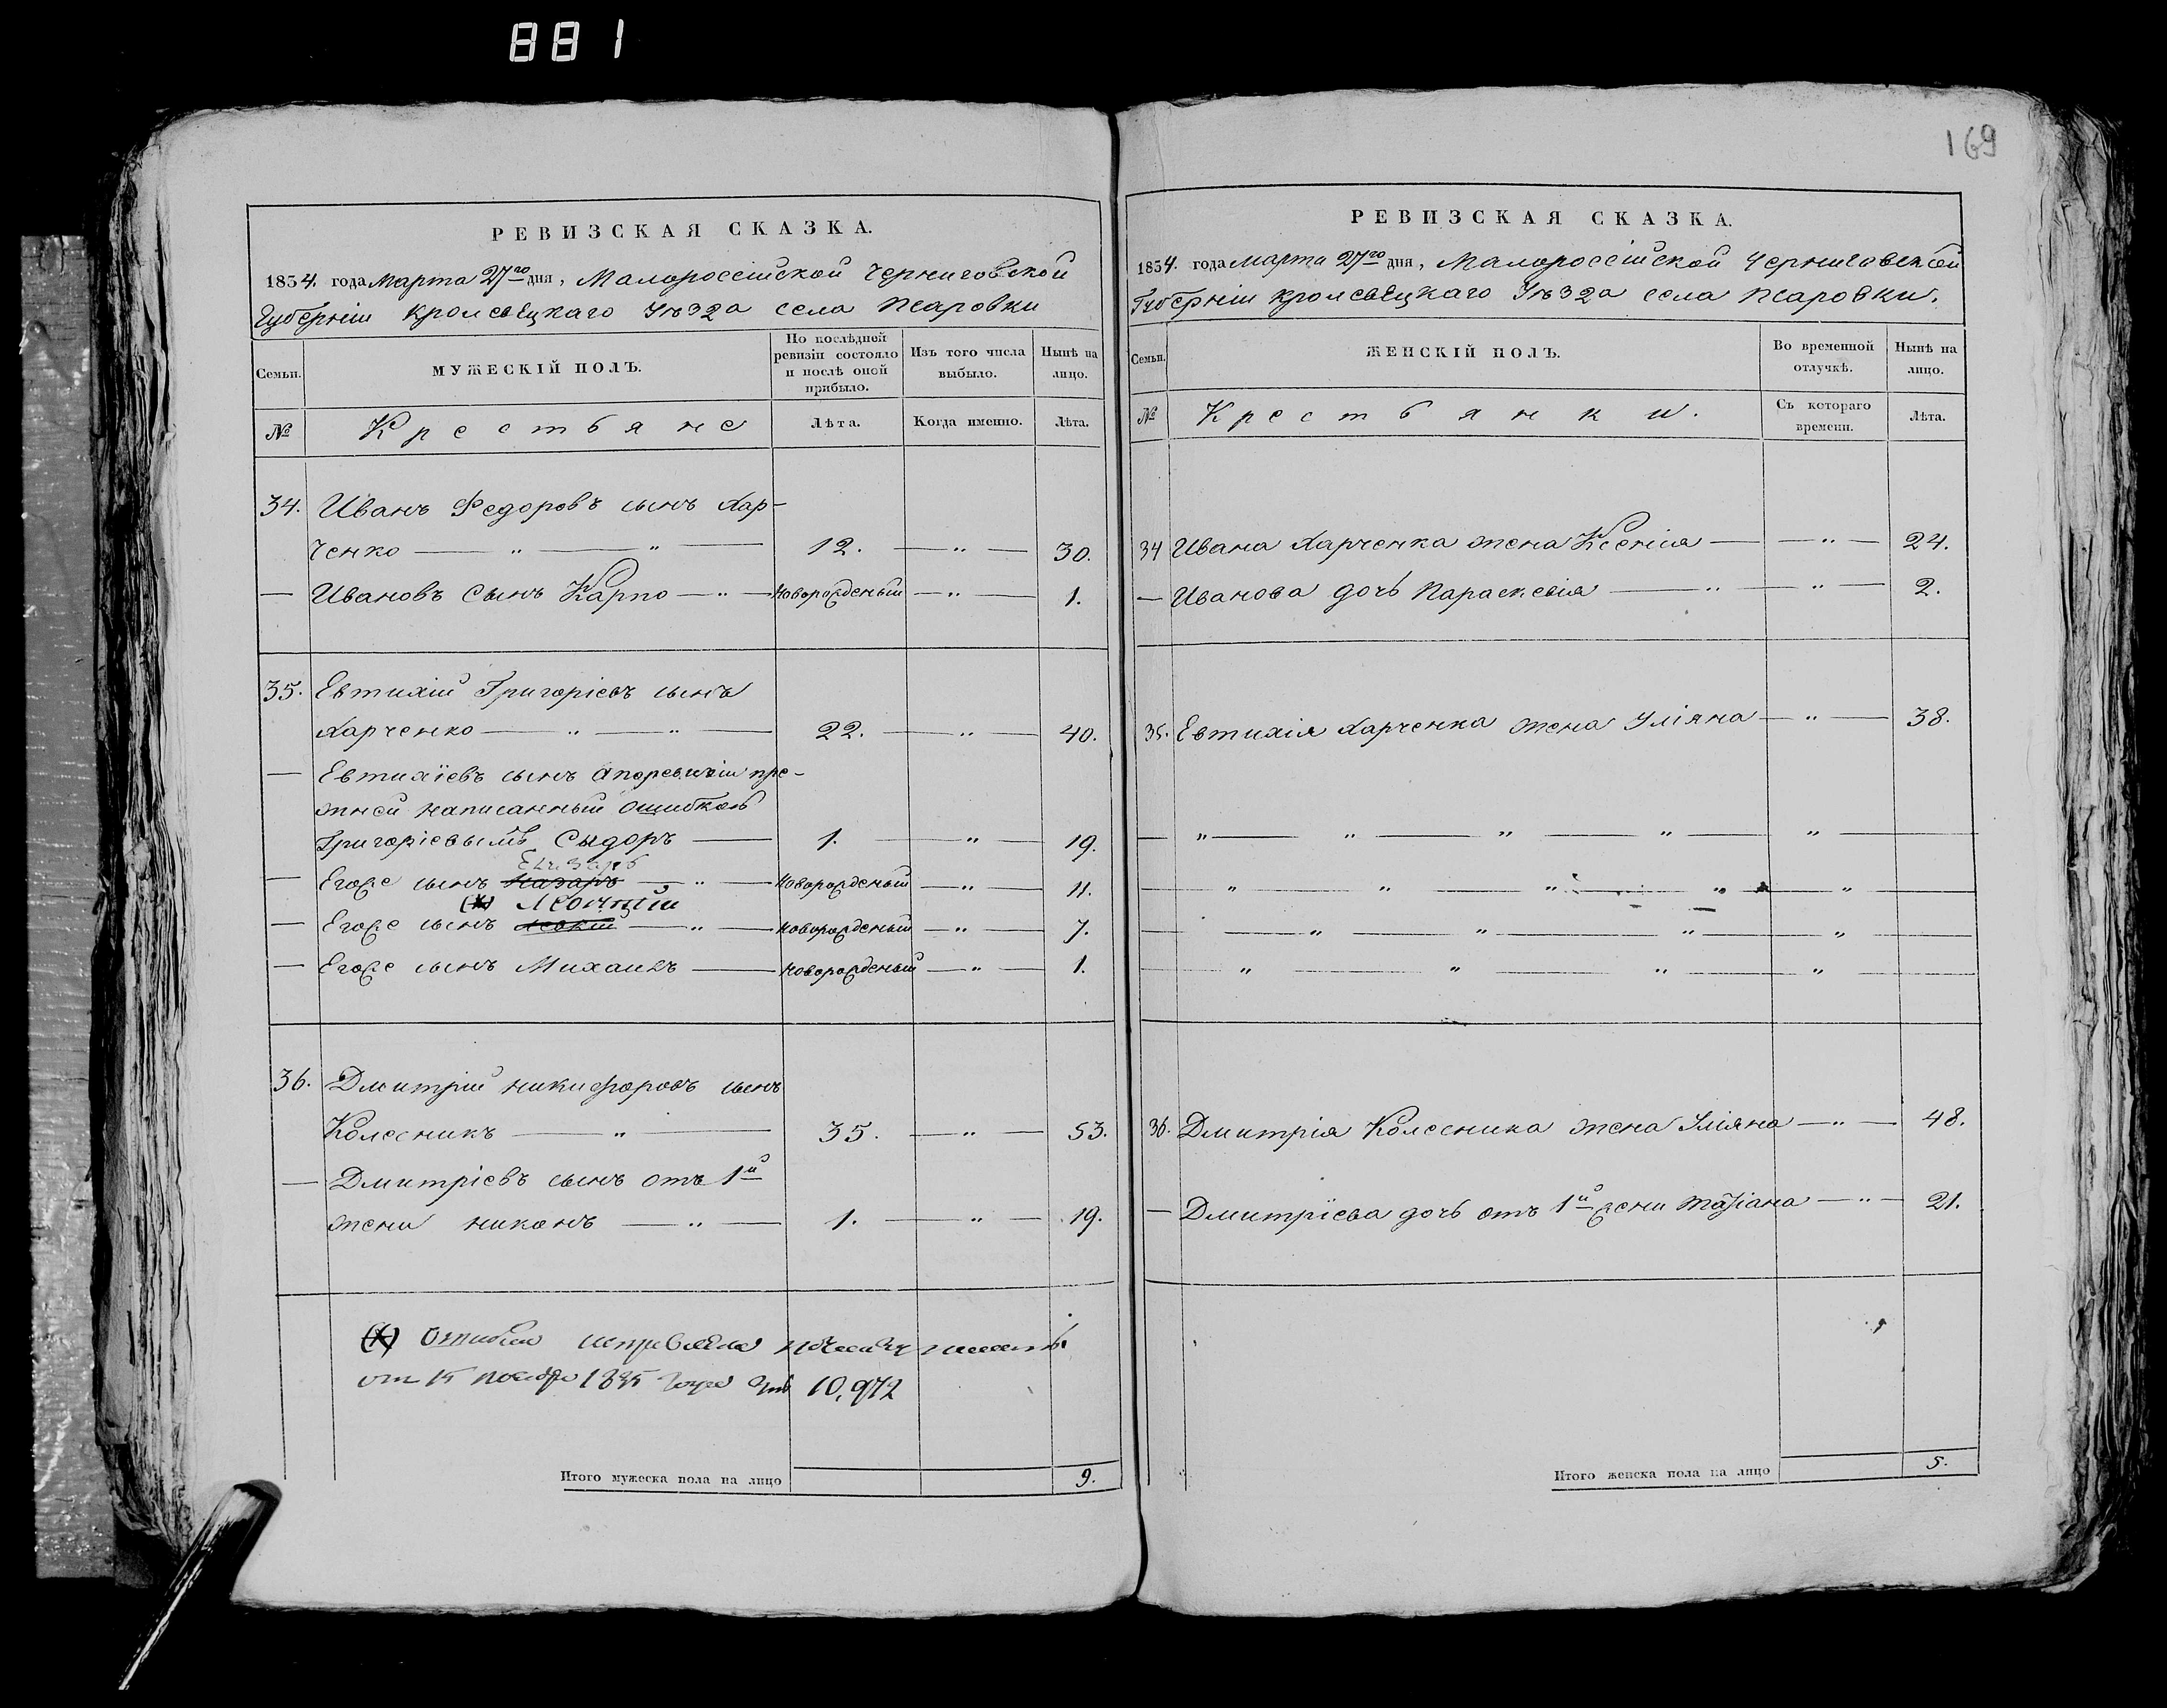 881
169
РЕВИЗСКАЯ СКАЗКА.
1854. года Марта 27го дня, Малороссійской Черниговской
Губерніи Кролевецкаго Уезда села Псаровки
Семьи.
МУЖЕСКІЙ ПОЛЪ.
По послѣдней ревизіи состояло и послѣ оной прибыло.
Изъ того числа выбыло.
Нынѣ на лицо.
№
Крестьяне
Лѣта.
Когда именно.
Лѣта.
34. Иванъ Федоровъ сынъ Хар-
ченко — " — " — 12. — " — 30.
— Ивановъ сынъ Карпо — " — Новорожденый — " — 1.
35. Евтихій Григоріевъ сынъ
Харченко — " — " — 22. — " — 40.
— Евтихіевъ сынъ по ревизіи пре-
жней написанный ошибкою
Григоріевымъ Сыдоръ — 1. — " — 19.
Елизаръ
— Егоже сынъ Назаръ — " — Новорожденый — " — 11.
(х) Леонтій
— Егоже сынъ — " — Новорожденый — " — 7.
— Егоже сынъ Михаилъ — Новорожденый — " — 1.
36. Дмитрій Никифоровъ сынъ
Колесникъ — " — 35. — " — 53.
— Дмитріевъ сынъ отъ 1й
жени Никонъ — " — 1. — " — 19.
(х) Ошибка исправлена
от 15 Ноября 10,972
Итого мужеска пола на лицо 9.
РЕВИЗСКАЯ СКАЗКА.
1854. года Марта 27го дня, Малороссійской Черниговской
Губерніи Кролевецкаго Уезда села Псаровки.
Семьи.
ЖЕНСКІЙ ПОЛЪ.
Во временной отлучкѣ.
Нынѣ на лицо.
№
Крестьянки.
Съ котораго времени.
Лѣта.
34 Ивана Харченка жена Ксенія — " — 24.
— Иванова дочь Параскевія — " — " — 2.
35. Евтихія Харченка жена Уліяна — " — 38.
— " — " — " — " — " —
— " — " — " — " — " —
— " — " — " — " —
— " — " — " — " —
36. Дмитрія Колесника жена Уліяна — " — 48.
— Дмитріева дочь отъ 1й жени Татіана — " — 21.
Итого женска пола на лицо 5.